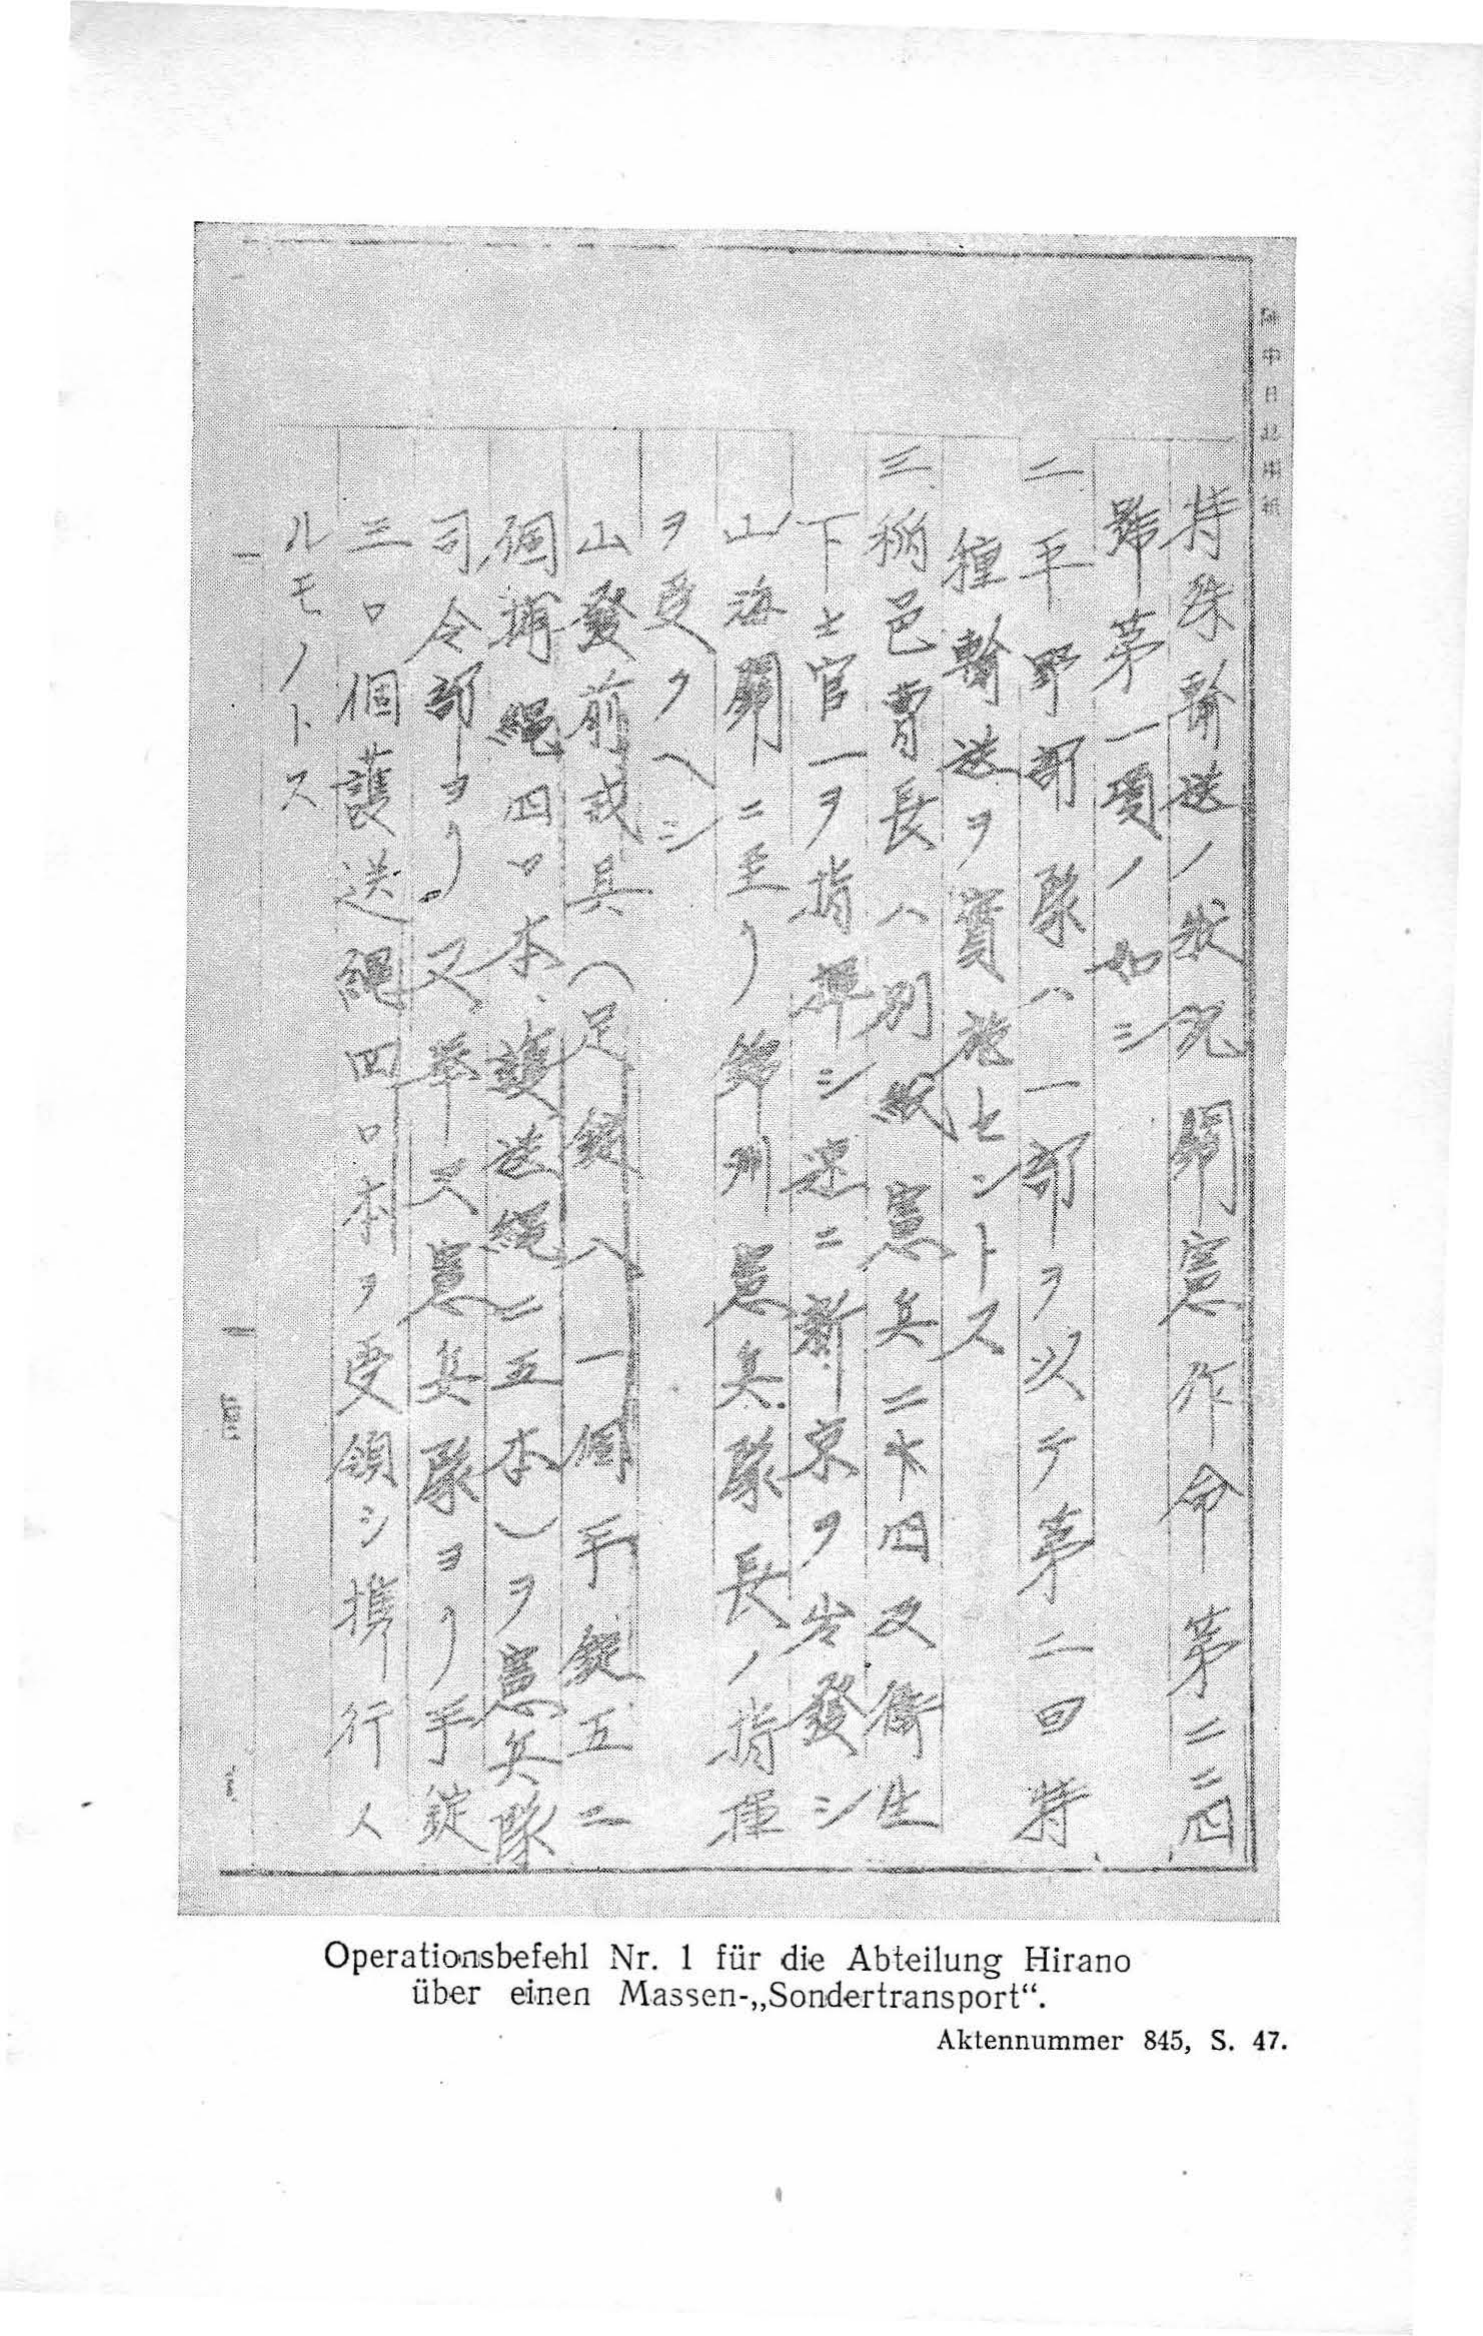 陣中日誌用紙
特殊輸送ノ狀況關憲作命第二二四
號第一項ノ如シ
二平野部隊ハ一部ヲ以テ第二回特
種輸送ヲ實施セントス
三稲邑曹長ハ別紙憲兵二十四及衛生
下士官一ヲ指揮シ速ニ新京ヲ出發シ
山海關ニ至リ錦州憲兵隊長ノ指揮
ヲ受クヘシ
出發前戒具(足錠八一個手錠五二
個捕繩四〇本護送繩二五本)ヲ憲兵隊
司令部ヨリ又奉天憲兵隊ヨリ手錠
三〇個護送繩四〇本ヲ受領シ携行ス
ルモノトス
Operationsbefehl Nr. 1 für die Abteilung Hirano
über einen Massen-„Sondertransport“.
Aktennummer 845, S. 47.